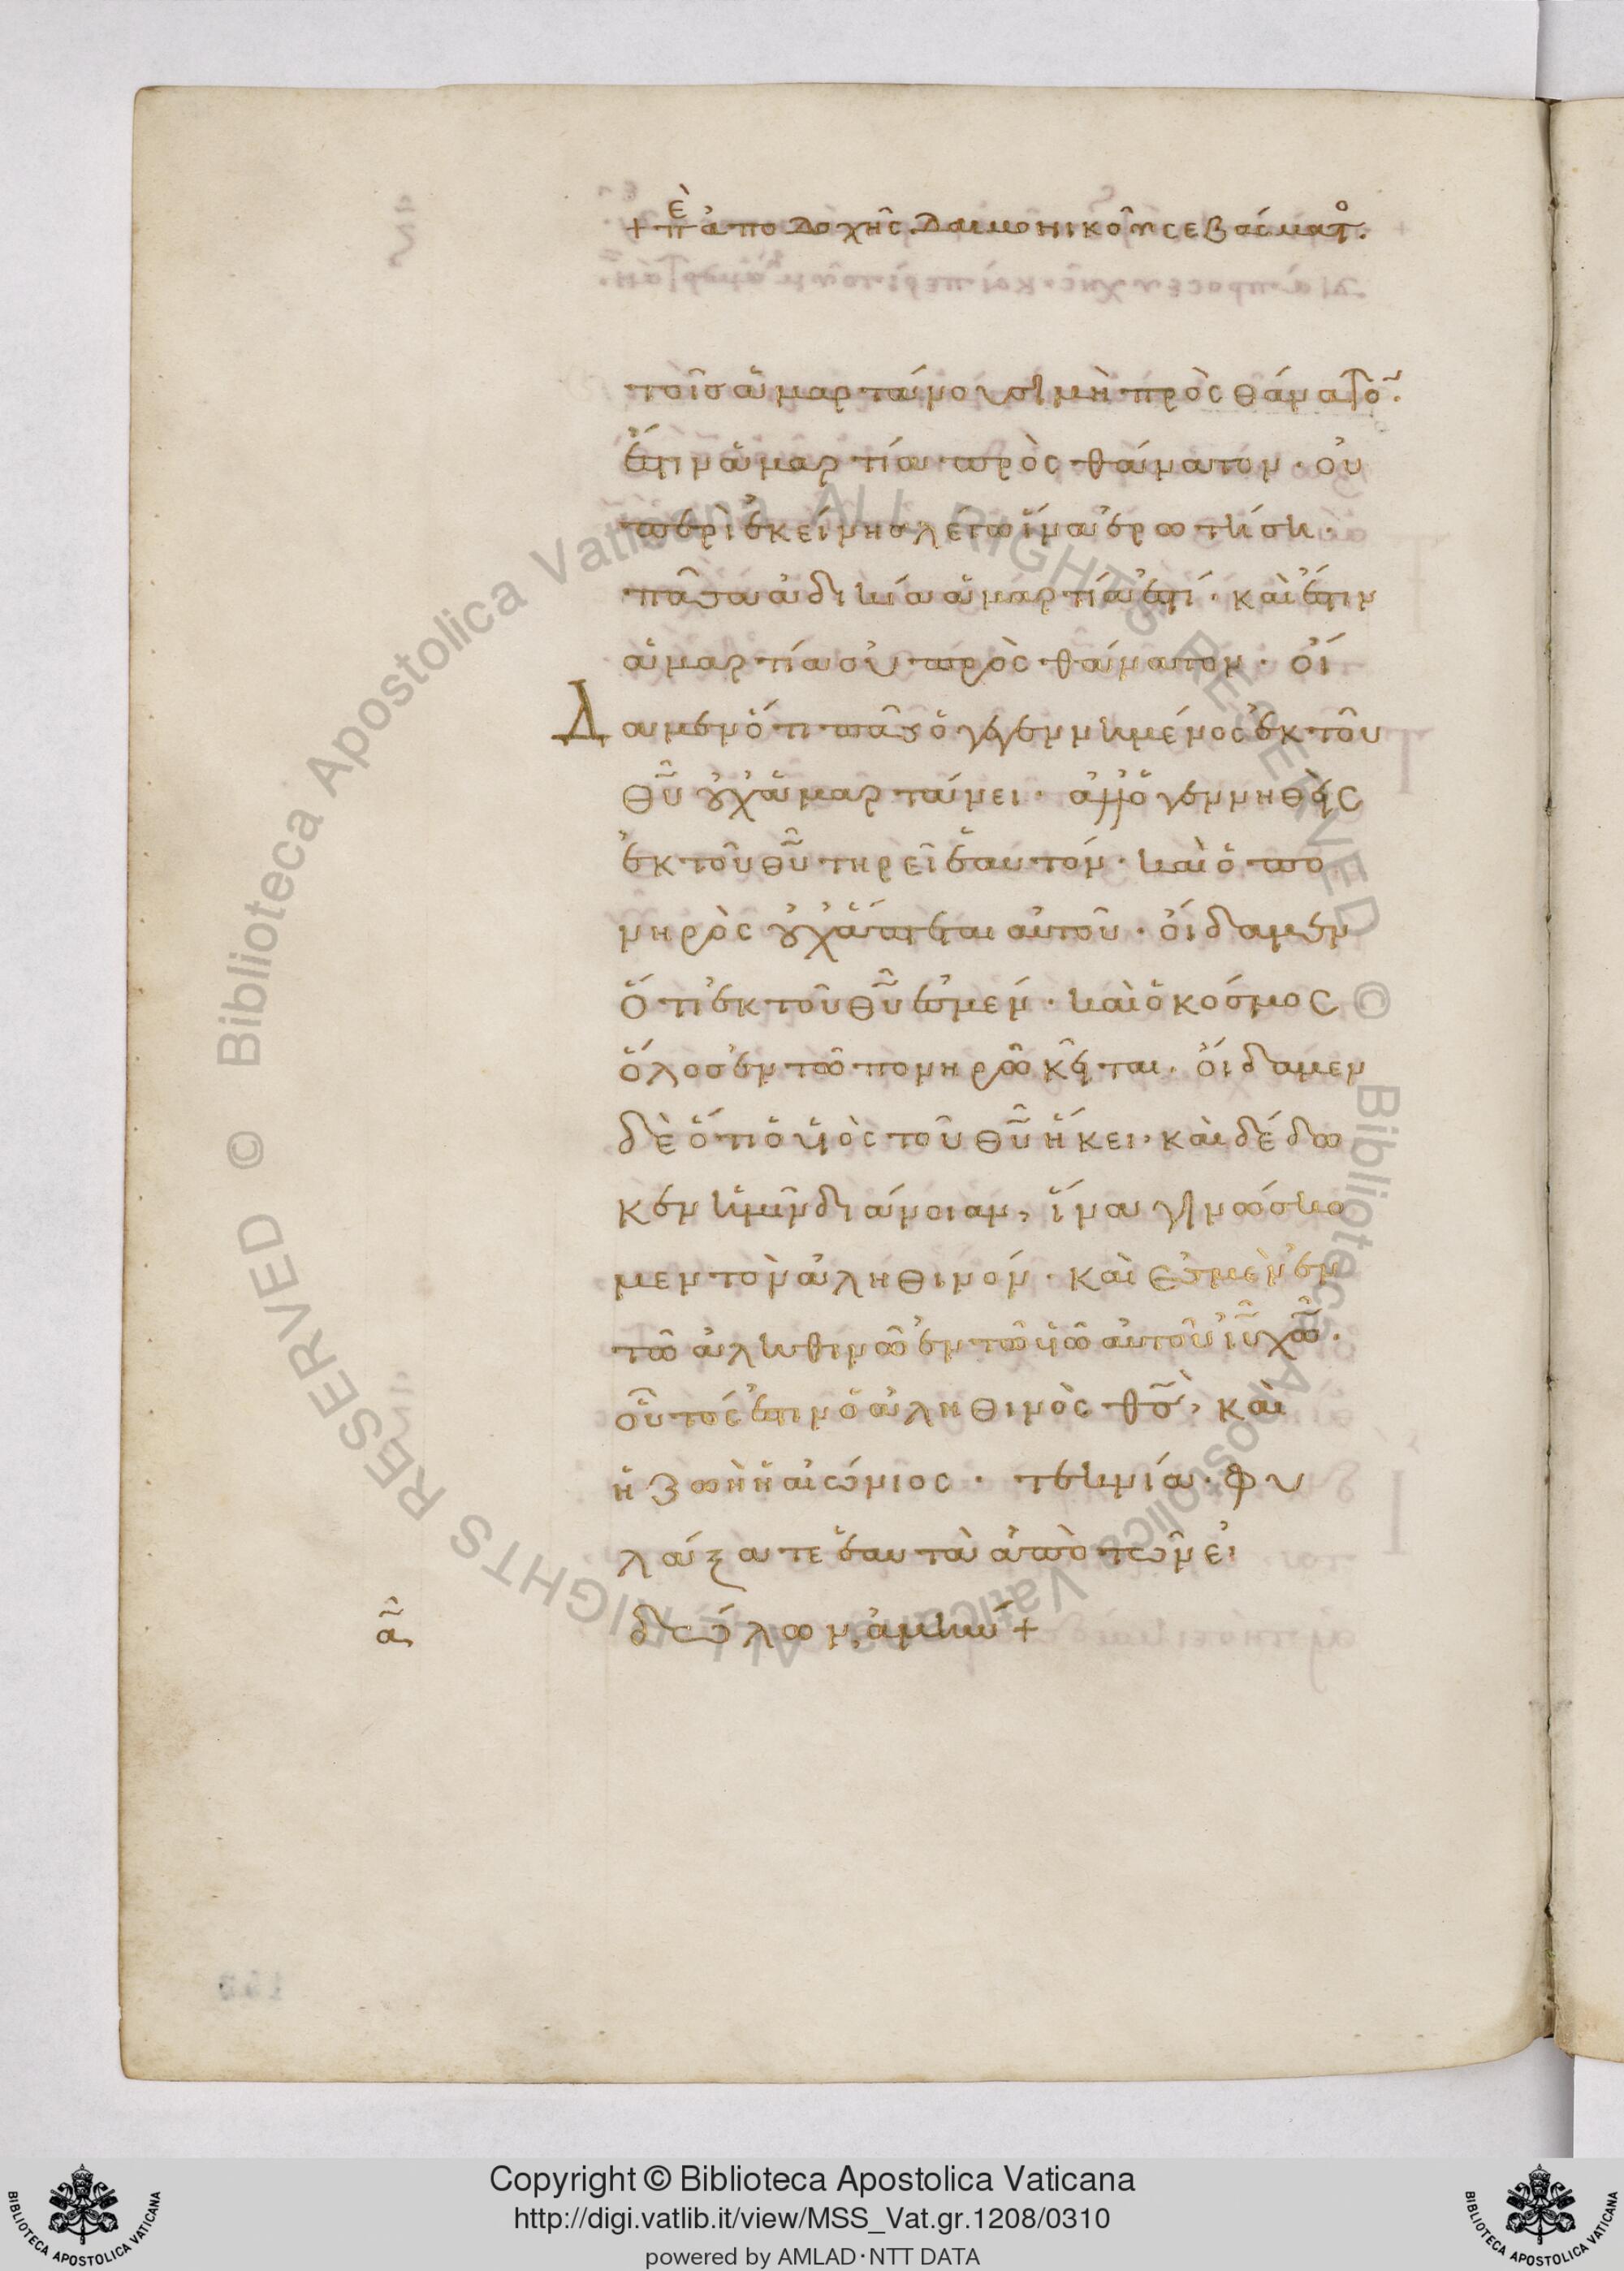 + πε ἀποδοχῆς δαιμονικοῦ σεβάσματο.
τοῖς ἁμαρτάνουσι μὴ πρὸς θάνατον.
ἔστιν ἁμαρτία πρὸς θάνατον · οὐ
περὶ ἐκείνης λέγω ἵνα ἐρωτήση ·
πᾶσα ἀδικία ἁμαρτία ἐστί · καὶ ἔστιν
ἁμαρτία οὐ πρὸς θάνατον · οἴ
Δαμεν ὅτι πᾶς ὁ γεγεννημένος ἐκ τοῦ
θ̅υ̅ οὐχ ἁμαρτάνει · ἀλλ' ὁ γεννηθεὶς
ἐκ τοῦ θ̅υ̅ τηρεῖ ἑαυτόν · καὶ ὁ πο
νηρὸς οὐχ ἅπτεται αὐτοῦ · οἴδαμεν
ὅτι ἐκ τοῦ θ̅υ̅ ἐσμέν · καὶ ὁ κόσμος
ὅλος ἐν τῶ πονηρῶ κεῖται · οἴδαμεν
δὲ ὅτι ὁ ὑιὸς τοῦ θ̅υ̅ ἥκει · καὶ δέδω
κεν ἡμῖν διάνοιαν, ἵνα γινώσκο
μεν τὸν ἀληθινόν · καὶ ἐσμὲν ἐν
τῶ ἀληθινῶ ἐν τῶ ὑιῶ αὐτοῦ ι̅υ̅ χ̅ω̅ ·
οὗτός ἐστιν ὁ ἀληθινὸς θ̅σ̅, καὶ
ἡ ζωὴ ἡ αἰώνιος · τεκνία · φυ
λάξατε ἑαυτὰ ἀπὸ τῶν εἰ
α̅ δώλων, ἀμήν +
Copyright © Biblioteca Apostolica Vaticana
http://digi.vatlib.it/view/MSS_Vat.gr.1208/0310
powered by AMLAD·NTT DATA
BIBLIOTECA APOSTOLICA VATICANA
BIBLIOTECA APOSTOLICA VATICANA
© Biblioteca Apostolica Vaticana ALL RIGHTS RESERVED © Biblioteca Apostolica Vaticana ALL RIGHTS RESERVED